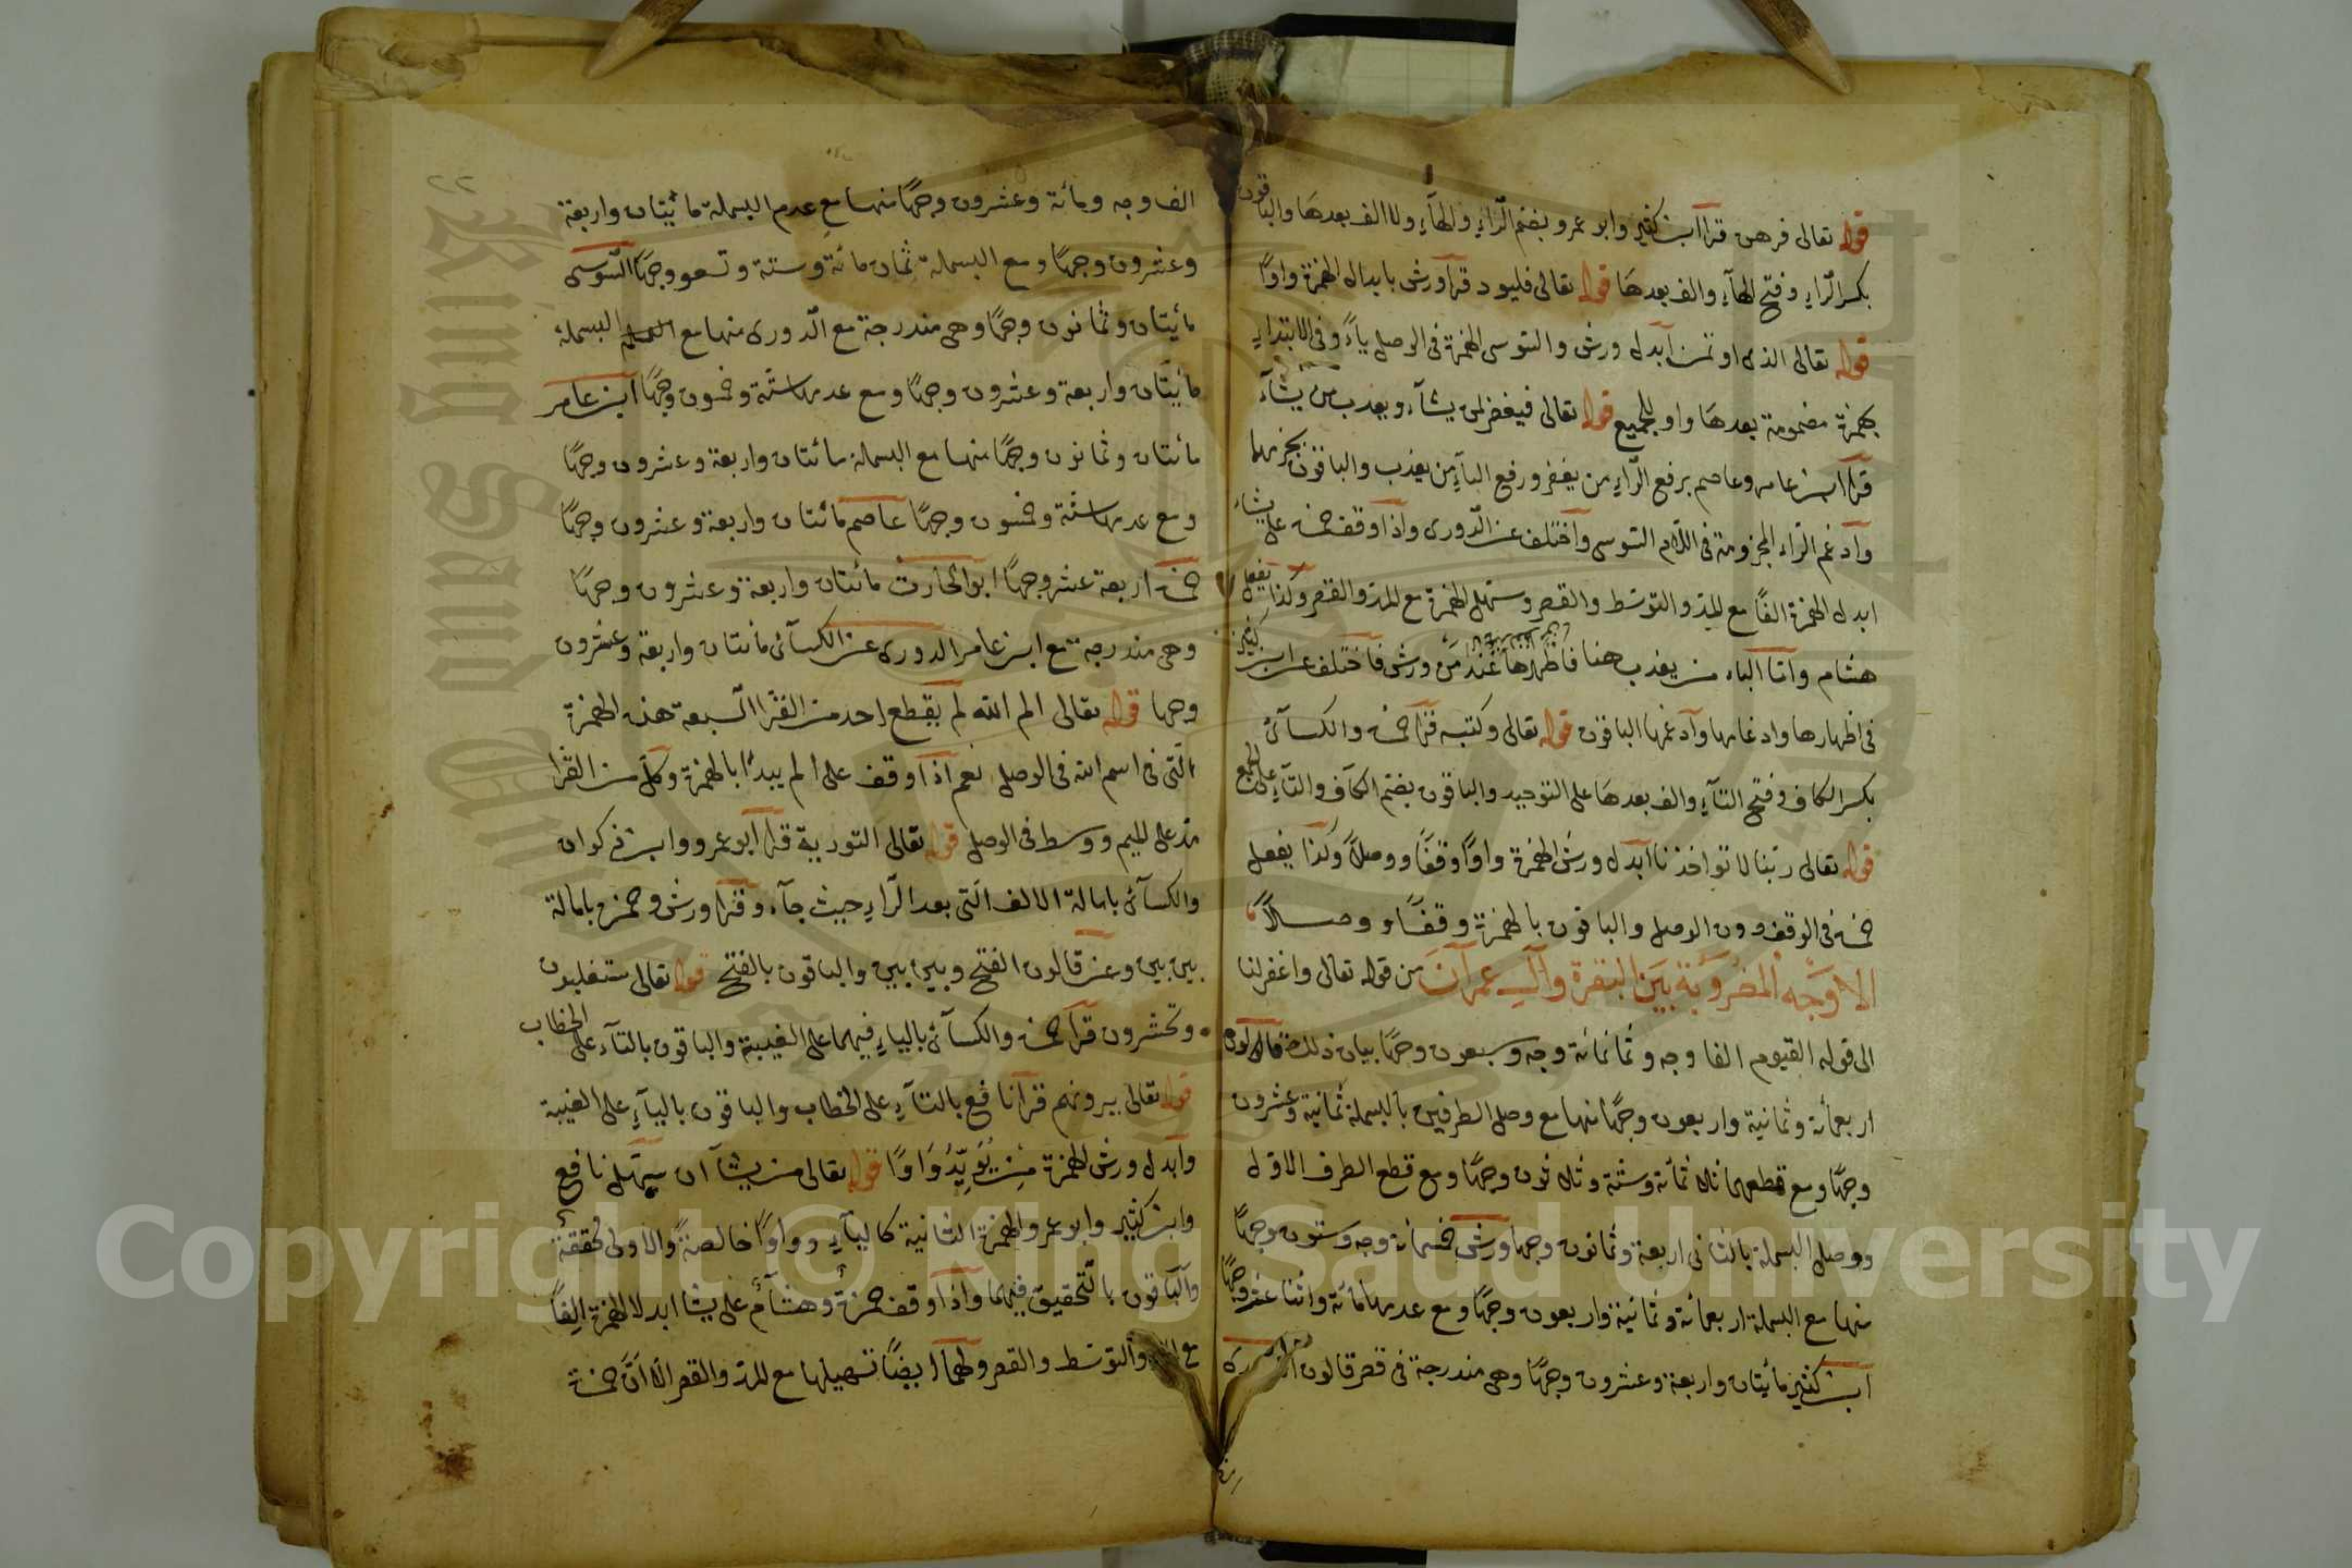 قوله تعالى فرهن قرا ابن كثير وابو عمرو بضم الراء والهاء ولا الف بعدها والباقون
بكسر الراء وفتح الهاء والف بعدها قوله تعالى فليود قرا ورش بابدال الهمزة واوا
قوله تعالى الذى اوتمن ابدل ورش والسوسى الهمزة فى الوصل ياء وفى الابتداء
بهمزة مضمومة بعدها واو للجميع قوله تعالى فيغفر لمن يشاء ويعذب من يشاء
قرا ابن عامر وعاصم برفع الراء من يغفر ورفع الباء من يعذب والباقون بجزمهما
وادغم الراء المجزومة فى اللام السوسى واختلف عن الدورى واذا وقف حمزة على يشاء
ابدل الهمزة الفا مع المد والتوسط والقصر وسهل الهمزة مع المد والقصر وكذا يفعل
هشام واما الباء من يعذب هنا فاظهرها عند من ورش فاختلف عن ابن كثير
فى اظهارها وادغامها وادغمها الباقون قوله تعالى وكتبه قرا حمزة والكسائى
بكسر الكاف وفتح التاء والف بعدها على التوحيد والباقون بضم الكاف والتاء على الجمع
قوله تعالى ربنا لا تواخذنا ابدل ورش الهمزة واوا وقفا ووصلا وكذا يفعل
حمزة فى الوقف دون الوصل والباقون بالهمزة وقفا ووصلا
الاوجه المضروبة بين البقرة وال عمران من قوله تعالى واغفر لنا
الى قوله القيوم الفا وجه وثمانمائة وجه وسبعون وجها بيان ذلك قالون
اربعمائة وثمانية واربعون وجها منها مع وصل الطرفين بالبسملة ثمانية وعشرون
وجها ومع قطعهما ثلاثمائة وستة وثلاثون وجها ومع قطع الطرف الاول
ووصل البسملة بالثانى اربعة وثمانون وجها ورش خمسمائة وجه وستون وجها
منها مع البسملة اربعمائة وثمانية واربعون وجها ومع عدمها مائة واثنا عشر وجها
ابن كثير مائيتان واربعة وعشرون وجها وهى مندرجة فى قصر قالون
٢٢
الف وجه ومائة وعشرون وجها منها مع عدم البسملة مائيتان واربعة
وعشرون وجها ومع البسملة ثمان مائة وستة وتسعو وجها السوسى
مائيتان وثمانون وجها وهى مندرجة مع الدورى منها مع البسملة
مائيتان واربعة وعشرون وجها ومع عدمها ستة وخمسون وجها ابن عامر
مائتان وثمانون وجها منها مع البسملة مائتان واربعة وعشرون وجها
ومع عدمها ستة وخمسون وجها عاصم مائتان واربعة وعشرون وجها
حمزة اربعة عشر وجها ابو الحارث مائتان واربعة وعشرون وجها
وهى مندرجة مع ابن عامر الدورى عن الكسائى مائتان واربعة وعشرون
وجها قوله تعالى الم الله لم يقطع احد من القرا السبعة هذه الهمزة
التى فى اسم الله فى الوصل نعم اذا وقف على الم يبدأ بالهمزة وكل من القرا
مد على الميم ووسط فى الوصل قوله تعالى التورية قرا ابو عمرو وابن ذكوان
والكسائى بامالة الالف التى بعد الراء حيث جاء وقرا ورش وحمزة بامالة
بين بين وعن قالون الفتح وبين بين والباقون بالفتح قوله تعالى ستغلبون
وتحشرون قرا حمزة والكسائى بالياء فيهما على الغيبة والباقون بالتاء على الخطاب
قوله تعالى يرونهم قرا نافع بالتاء على الخطاب والباقون بالياء على الغيبة
وابدل ورش الهمزة من يُؤيِّدُ واوا قوله تعالى من يشآ ان سهل نافع
وابن كثير وابو عمرو الهمزة الثانية كالياء وواوا خالصة والاولى محققة
والباقون بالتحقيق فيهما واذا وقف حمزة وهشام على يشا ابدلا الهمزة الفا
مع والتوسط والقصر ولهما ايضا تسهيلها مع المد والقصر الا ان حمزة
Copyright © King Saud University